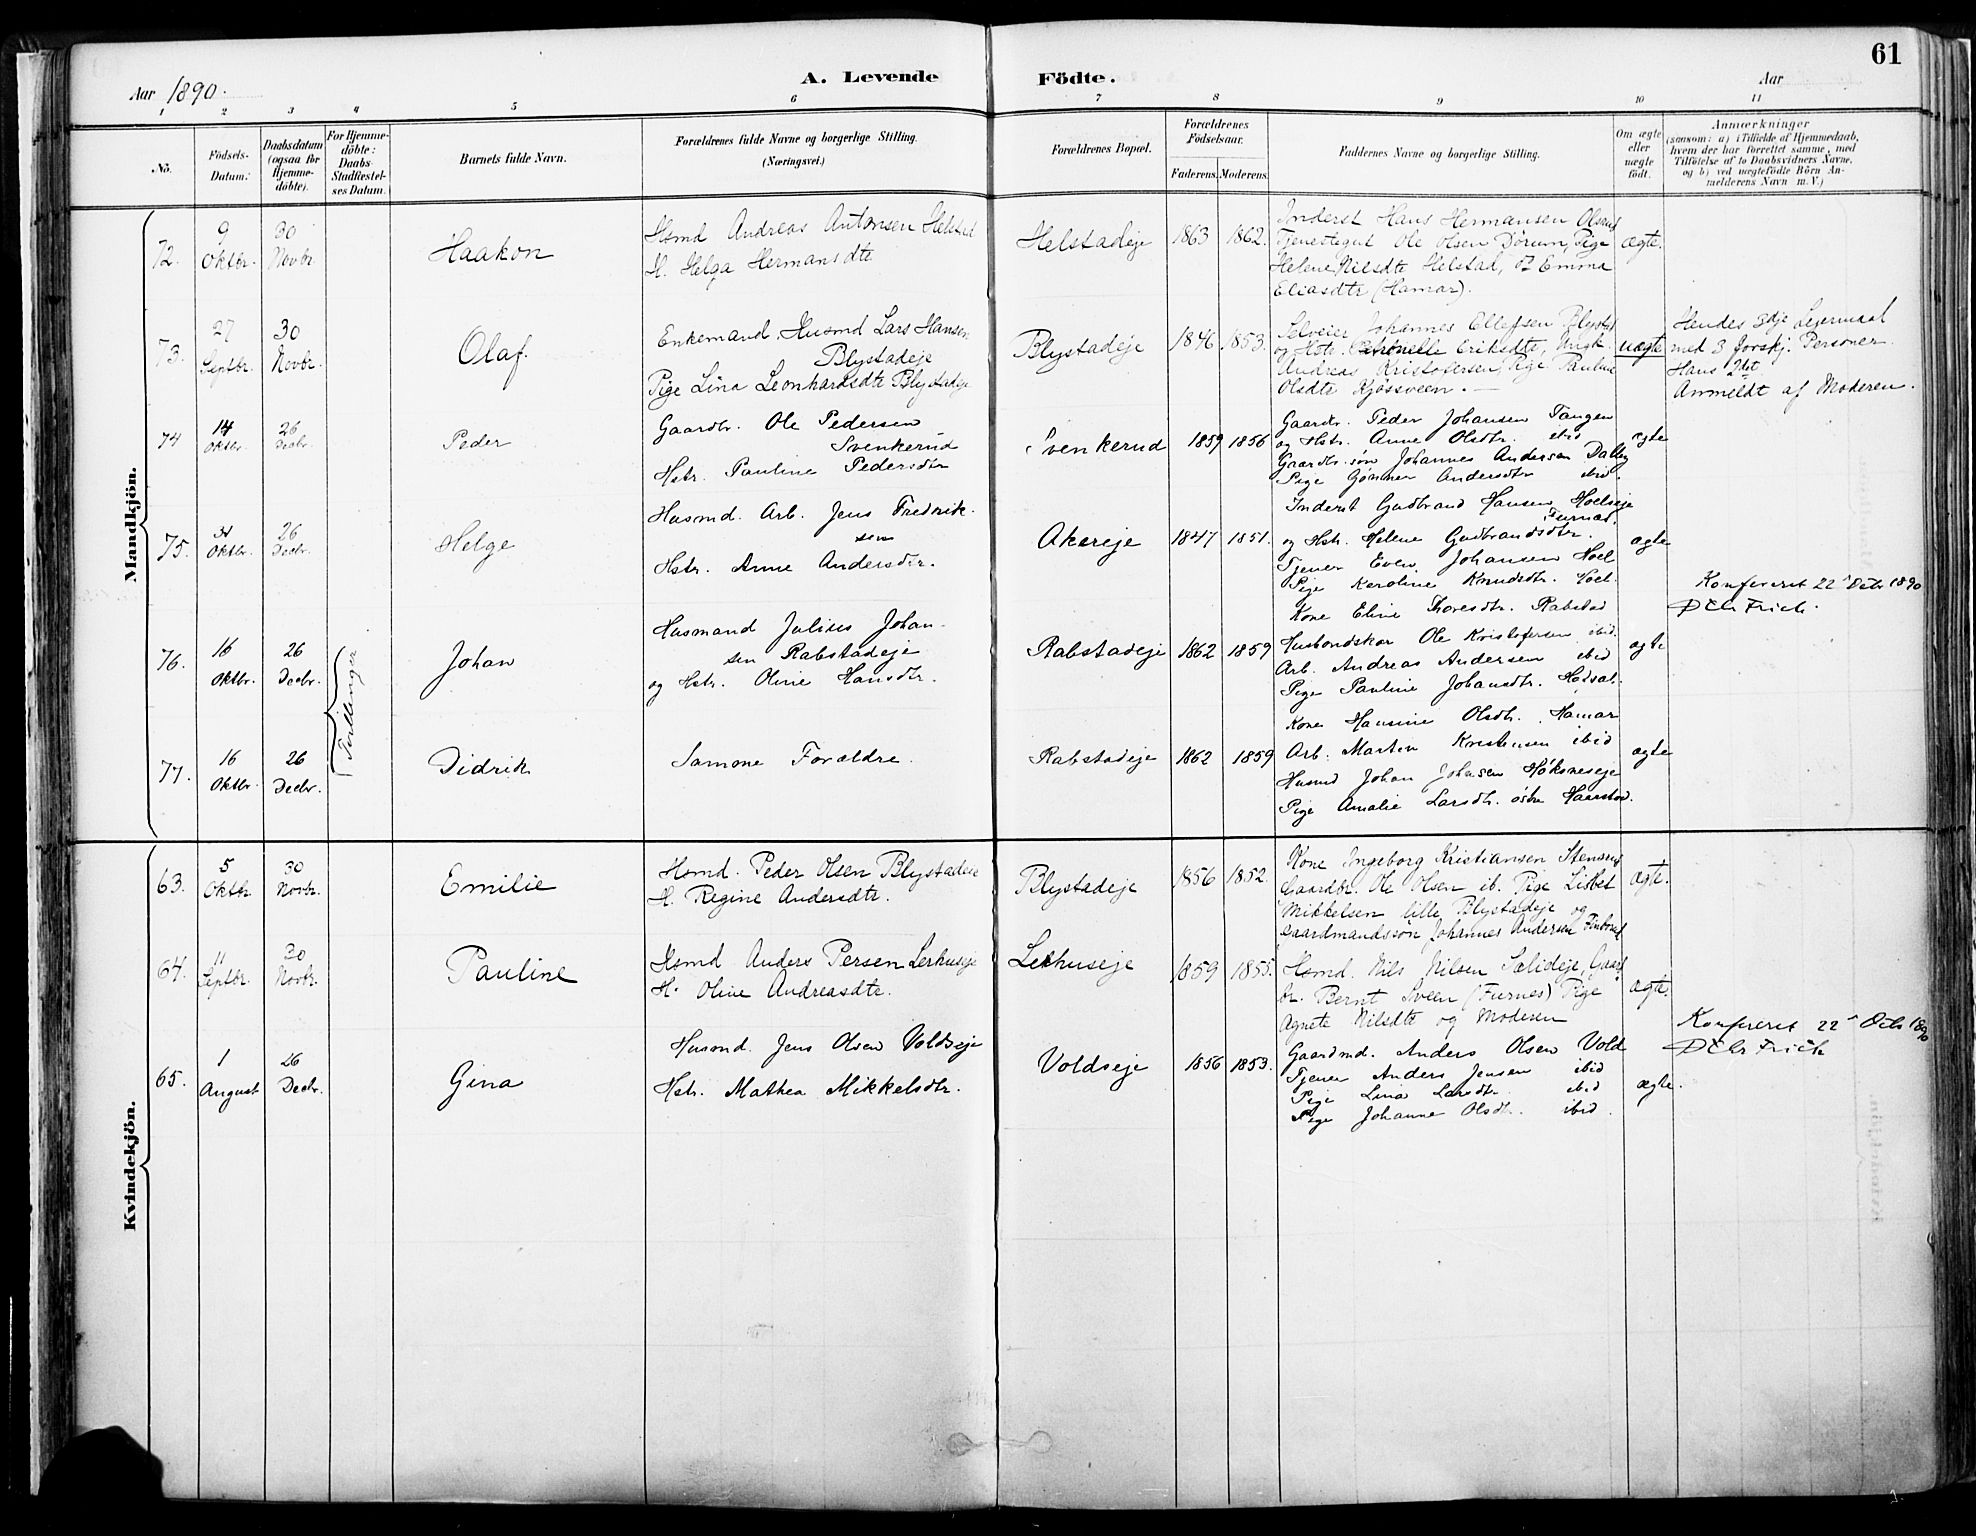 61
Aar 1890.
A. Levende Födte.
Aar
1 2 3 4 5 6 7 8 9 10 11
No.
Födsels-
Datum.
Daabsdatum
(ogsaa for
Hjemme-
döbte).
For Hjemme-
döbte:
Daabs-
Stadfæstel-
ses Datum.
Barnets fulde Navn.
Forældrenes fulde Navne og borgerlige Stilling.
(Næringsvei.)
Forældrenes Bopæl.
Forældrenes
Födselsaar.
Faderens. Moderens.
Faddernes Navne og borgerlige Stilling.
Om ægte
eller
uægte
født.
Anmærkninger
(saasom: a) i Tilfælde af Hjemmedaab,
hvem der har forrettet samme, med
Tilföielse af to Daabsvidners Navne,
og b) ved uægtefödte Börn An-
melderens Navn m. V.)
Mandkjön.
72.
9
Oktbr.
30
Novbr.
Haakon
Hsmd Andreas Antonsen Helstad
H. Helga Hermansdtr
Helstadeje
1863
1862.
Inderst Hans Hermansen Olsrud
Tjenestegut Ole Olsen Dørum, Pige
Helene Nilsdtr Helstad, og Emma
Eliasdtr (Hamar).
ægte.
73.
27
Septbr.
30
Novbr.
Olaf.
Enkemand Husmd Lars Hansen
Blystadeje
Pige Lina Leonhardsdtr Blystadeje
Blystadeje
1846
1853.
Selveier Johannes Ellefsen Blystad
og Hstr. Petronelle Eriksdtr, Ungk
Andreas Kristofersen, Pige Pauline
Olsdtr Kjøssveen. —
uægte
Hendes 3dje Lejermaal
med 3 forskj. Personer.
Hans 2det
Anmeldt af Moderen.
74
14
Oktbr.
26
Decbr.
Peder
Gaardbr. Ole Pedersen
Svenkerud
Hstr. Pauline Pedersdtr
Svenkerud
1859
1856
Gaardbr. Peder Johansen Tangen
og Hstr. Anne Olsdtr. ibid
Gaardbr. søn Johannes Andersen Dalby
Pige Gønner Andersdtr ibid.
ægte
75.
31
Oktbr.
26
Decbr.
Helge
Husmd. Arb. Jens Fredrik-
sen
Hstr. Anne Andersdtr.
Akereje
1847
1851.
Inderst Gudbrand Hansen, Hoelseje
Furnæs.
og Hstr. Helene Gudbrandsdtr.
Tjener Even Johansen Hoel
Pige Karoline Knudsdtr. Hoel.
ægte
Konfereret 22 Decbr 1890
D Chr Frich.
76.
16
Oktbr.
26
Decbr.
Tvillinger
Johan
Husmand Julius Johan-
sen Rabstadeje
og Hstr. Oline Hansdtr.
Rabstadeje
1862
1859
Kone Eline Thoresdtr. Rabstad
Husbondskar Ole Kristofersen ibid.
Arb. Andreas Andersen ibid
Pige Pauline Johansdtr.
ægte
77.
16
Oktbr.
26
Decbr.
Didrik
Samme Forældre.
Rabstadeje
1862
1859
Kone Hansine Olsdtr. Hamar
Arb. Martin Kristensen ibid
Husmd Johan Johnsen Høksneseje
Pige Amalie Larsdtr. østre Haarstad.
ægte
Kvindekjön.
63.
5
Oktbr.
30
Novbr.
Emilie
Hsmd. Peder Olsen Blystadeje
H. Regine Andersdtr.
Blystadeje
1856
1852.
Kone Ingeborg Kristiansen Stensrud
Gaardbr. Ole Olsen ib. Pige Lisbet
Mikkelsen lille Blystadeje og
Gaardmandssøn Johannes Andersen
ægte.
64.
11
Septbr.
30
Novbr.
Pauline
Hsmd Anders Persen Lerhuseje
H. Oline Andreasdtr.
Lerhuseje
1859
1855.
Hsmd. Nils Nilsen Sælideje, Gaard
br. Bernt Sveen (Furnes) Pige
Agnete Nilsdtr og Moderen
ægte.
65.
1
August
26
Decbr.
Gina
Husmd. Jens Olsen Voldseje
Hstr. Mathea Mikkelsdtr.
Voldseje
1856
1853.
Gaardmd. Anders Olsen Vold
Tjener Anders Jensen ibid
Pige Lina Larsdtr. ibid
Pige Johanne Olsdtr. ibid.
ægte.
Konfereret 22 Decbr 1890
D Chr Frich